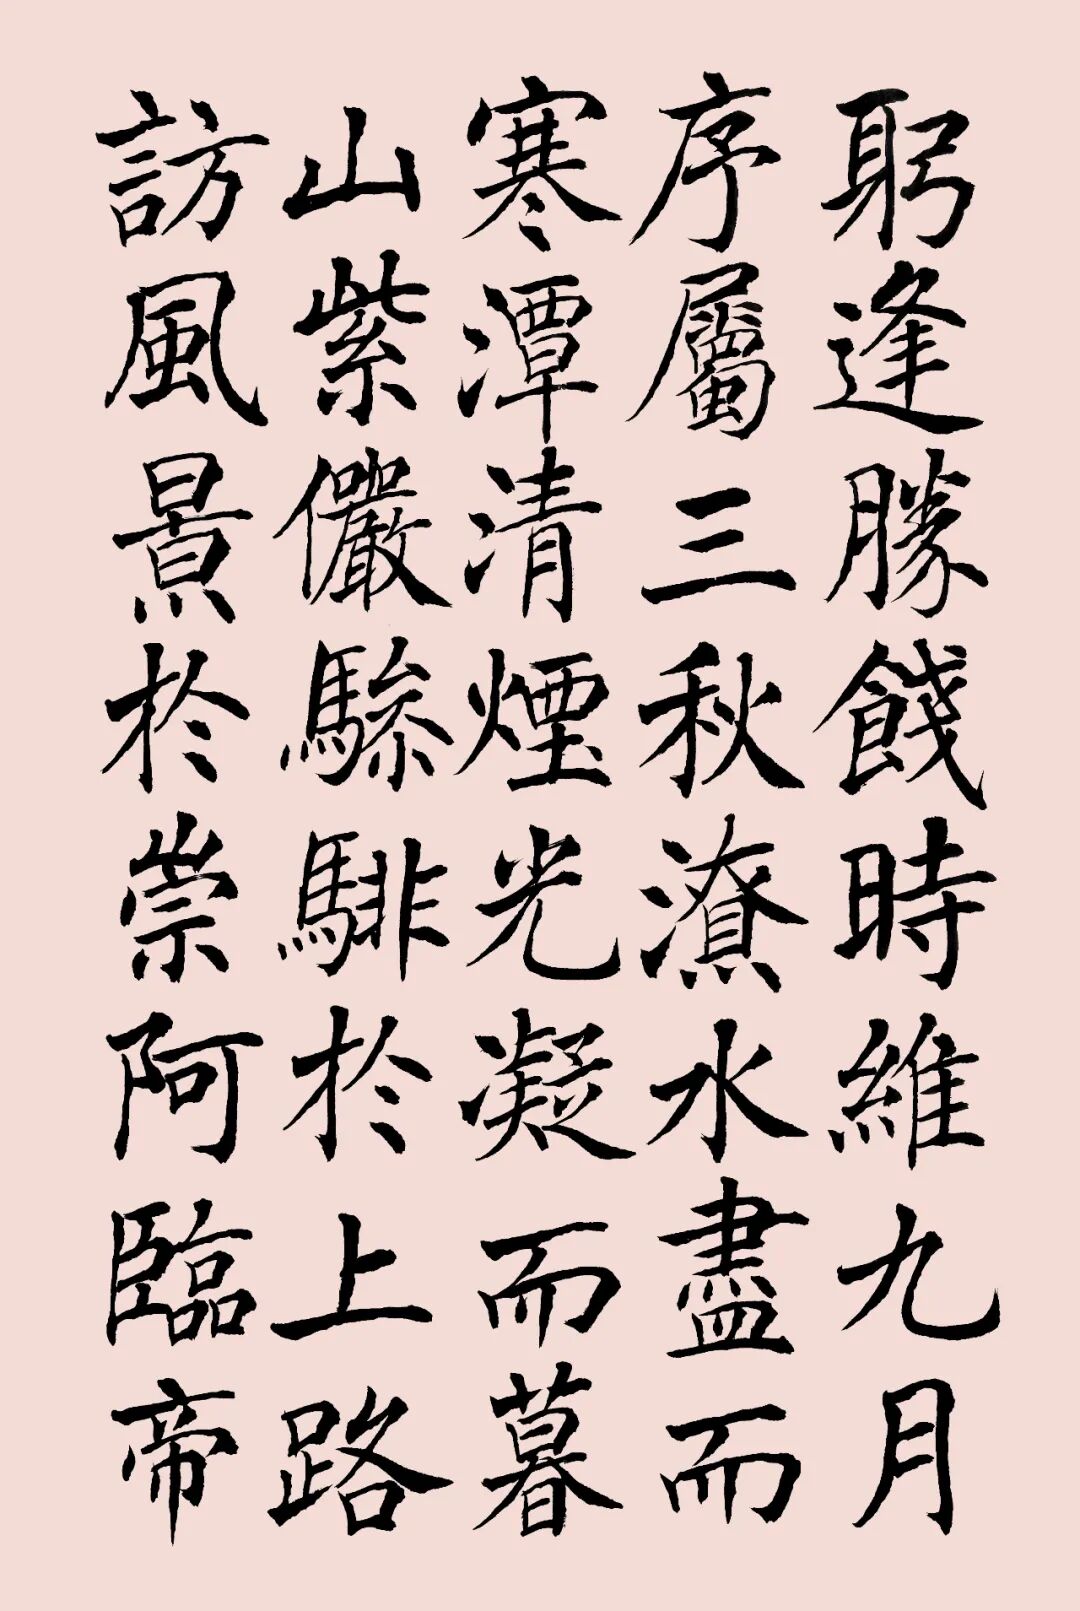 躬逢勝餞時維九月
序屬三秋潦水盡而
寒潭清煙光凝而暮
山紫儼驂騑於上路
訪風景於崇阿臨帝